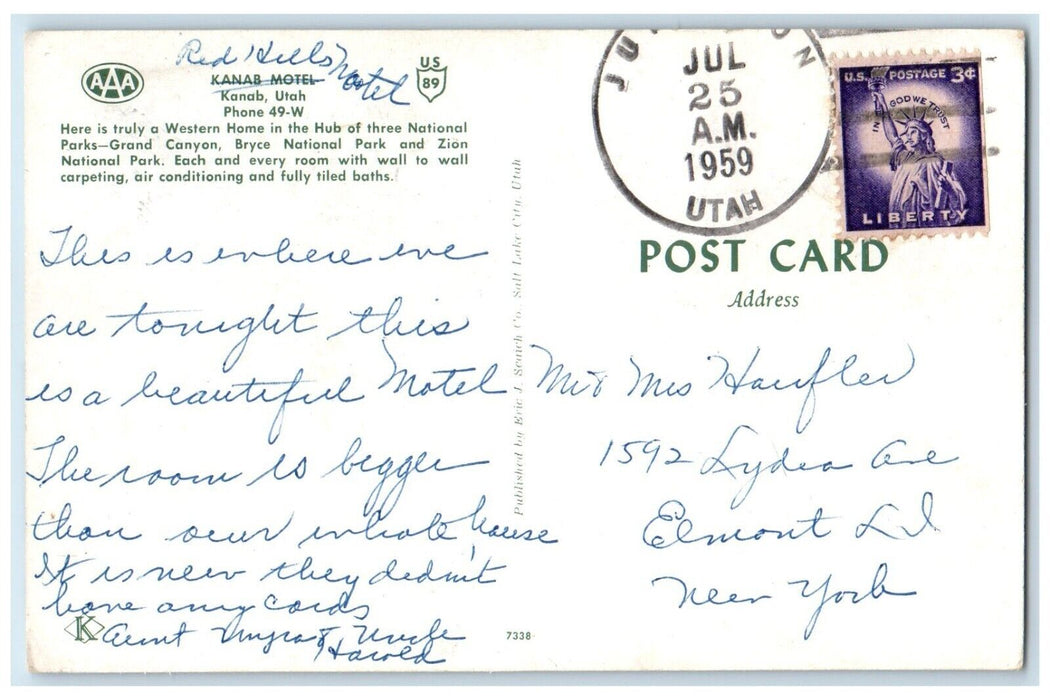 Red Hills Motel
AAA
KANAB MOTEL
Kanab, Utah
Phone 49-W
US
89
Here is truly a Western Home in the Hub of three National
Parks—Grand Canyon, Bryce National Park and Zion
National Park. Each and every room with wall to wall
carpeting, air conditioning and fully tiled baths.
This is where we
are tonight this
is a beautiful Motel
The room is bigger
than our whole house
It is new they dedn't
have any cards
Aunt Myra & Uncle
Harold
K
7338
Published by Eric J. Seaich Co., Salt Lake City, Utah
JUNCTION
JUL
25
A.M.
1959
UTAH
U.S. POSTAGE 3¢
IN GOD WE TRUST
LIBERTY
POST CARD
Address
Mr & Mrs Haufler
1592 Lydia Ave
Elmont L I
New York